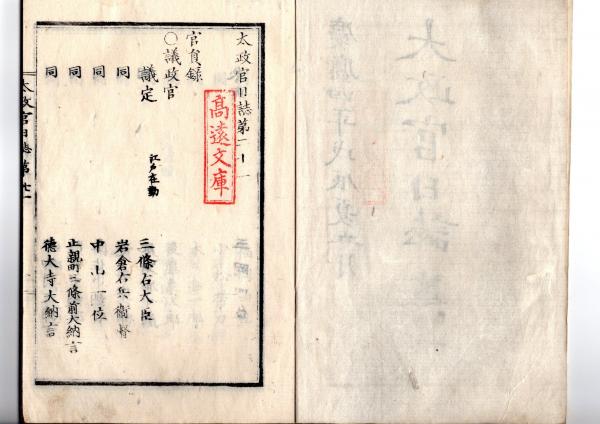 太政官日誌第二十一
官員録
○議政官
議定 江戸在勤 三條右大臣
同 岩倉右兵衞督
同 中山一位
同 正親町三條前大納言
同 德大寺大納言
高遠文庫
太政官日誌第廿一